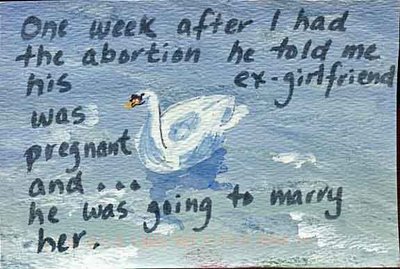 One week after I had
the abortion he told me
his ex-girlfriend
was
pregnant
and...
he was going to marry
her.